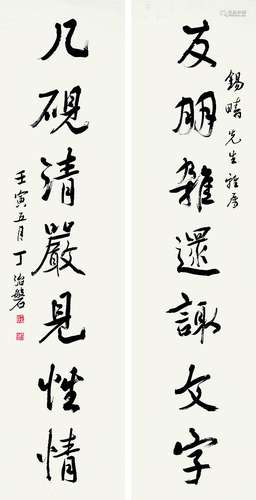 錫疇先生雅屬
友朋雜還文字
几硯清嚴見性情
壬寅五月丁治磐